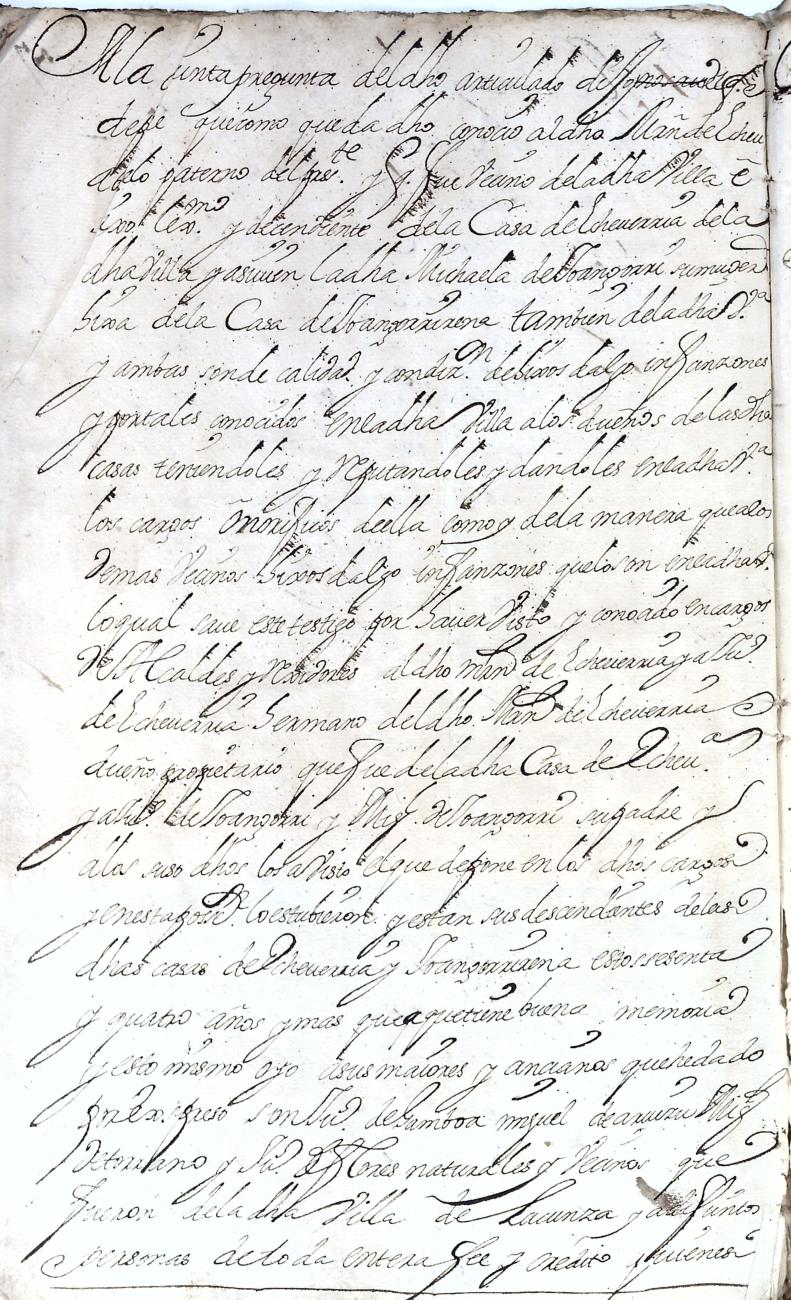 A la quinta pregunta del dho articulado
depe que como queda dho conocio al dho Mañ de Echeu
abelo paterno del pste. y q. fue Vecino de la dha Villa è
hixo lexmo. y decendiente de la Casa de Echeuerria de la
dha Villa y asiuien la dha Michaela de Ybangorri su muger
hixa de la Casa de Ybangorrirena tambien de la dha Va.
y ambas son de calidad. y condizon. de hixos dalgo infanzones
y por tales conocidos en la dha Villa a los dueños de las dha
casas teniendoles y Reputandoles y dandoles en la dha Va.
los cargos onorificos de ella como y de la manera que a los
demas Vecinos hixos dalgo infanzones que lo son en la dha V.
lo qual saue este testigo por hauer Visto y conocido en cargos
de Alcaldes y Rexidores al dho Mrn de Echeuerria y a Ju.
de Echeuerria hermano del dho Mrn de Echeuerria
dueño propietario que fue de la dha Casa de Echeua.
y a Ju. de Ybangorri y Mig. de Ybangorri su padre y
a los suso dhos los a Visto el que depone en los dhos cargos
y en esta posn. lo estubieron y estan sus descendientes de las
dhas casas de Echeuerria y Ybangorrirena estos sesenta
y quatro años y mas que a que tiene buena memoria
y esto mismo oyo a sus maiores y ancianos que he dado
por expreso son Ju. de Gamboa miguel de aruizu Mig
de torrano y Ju. de flores naturales y Vecinos que
fueron de la dha Villa de Lacunza ya difuntos
personas de toda entera fee y credito quienes